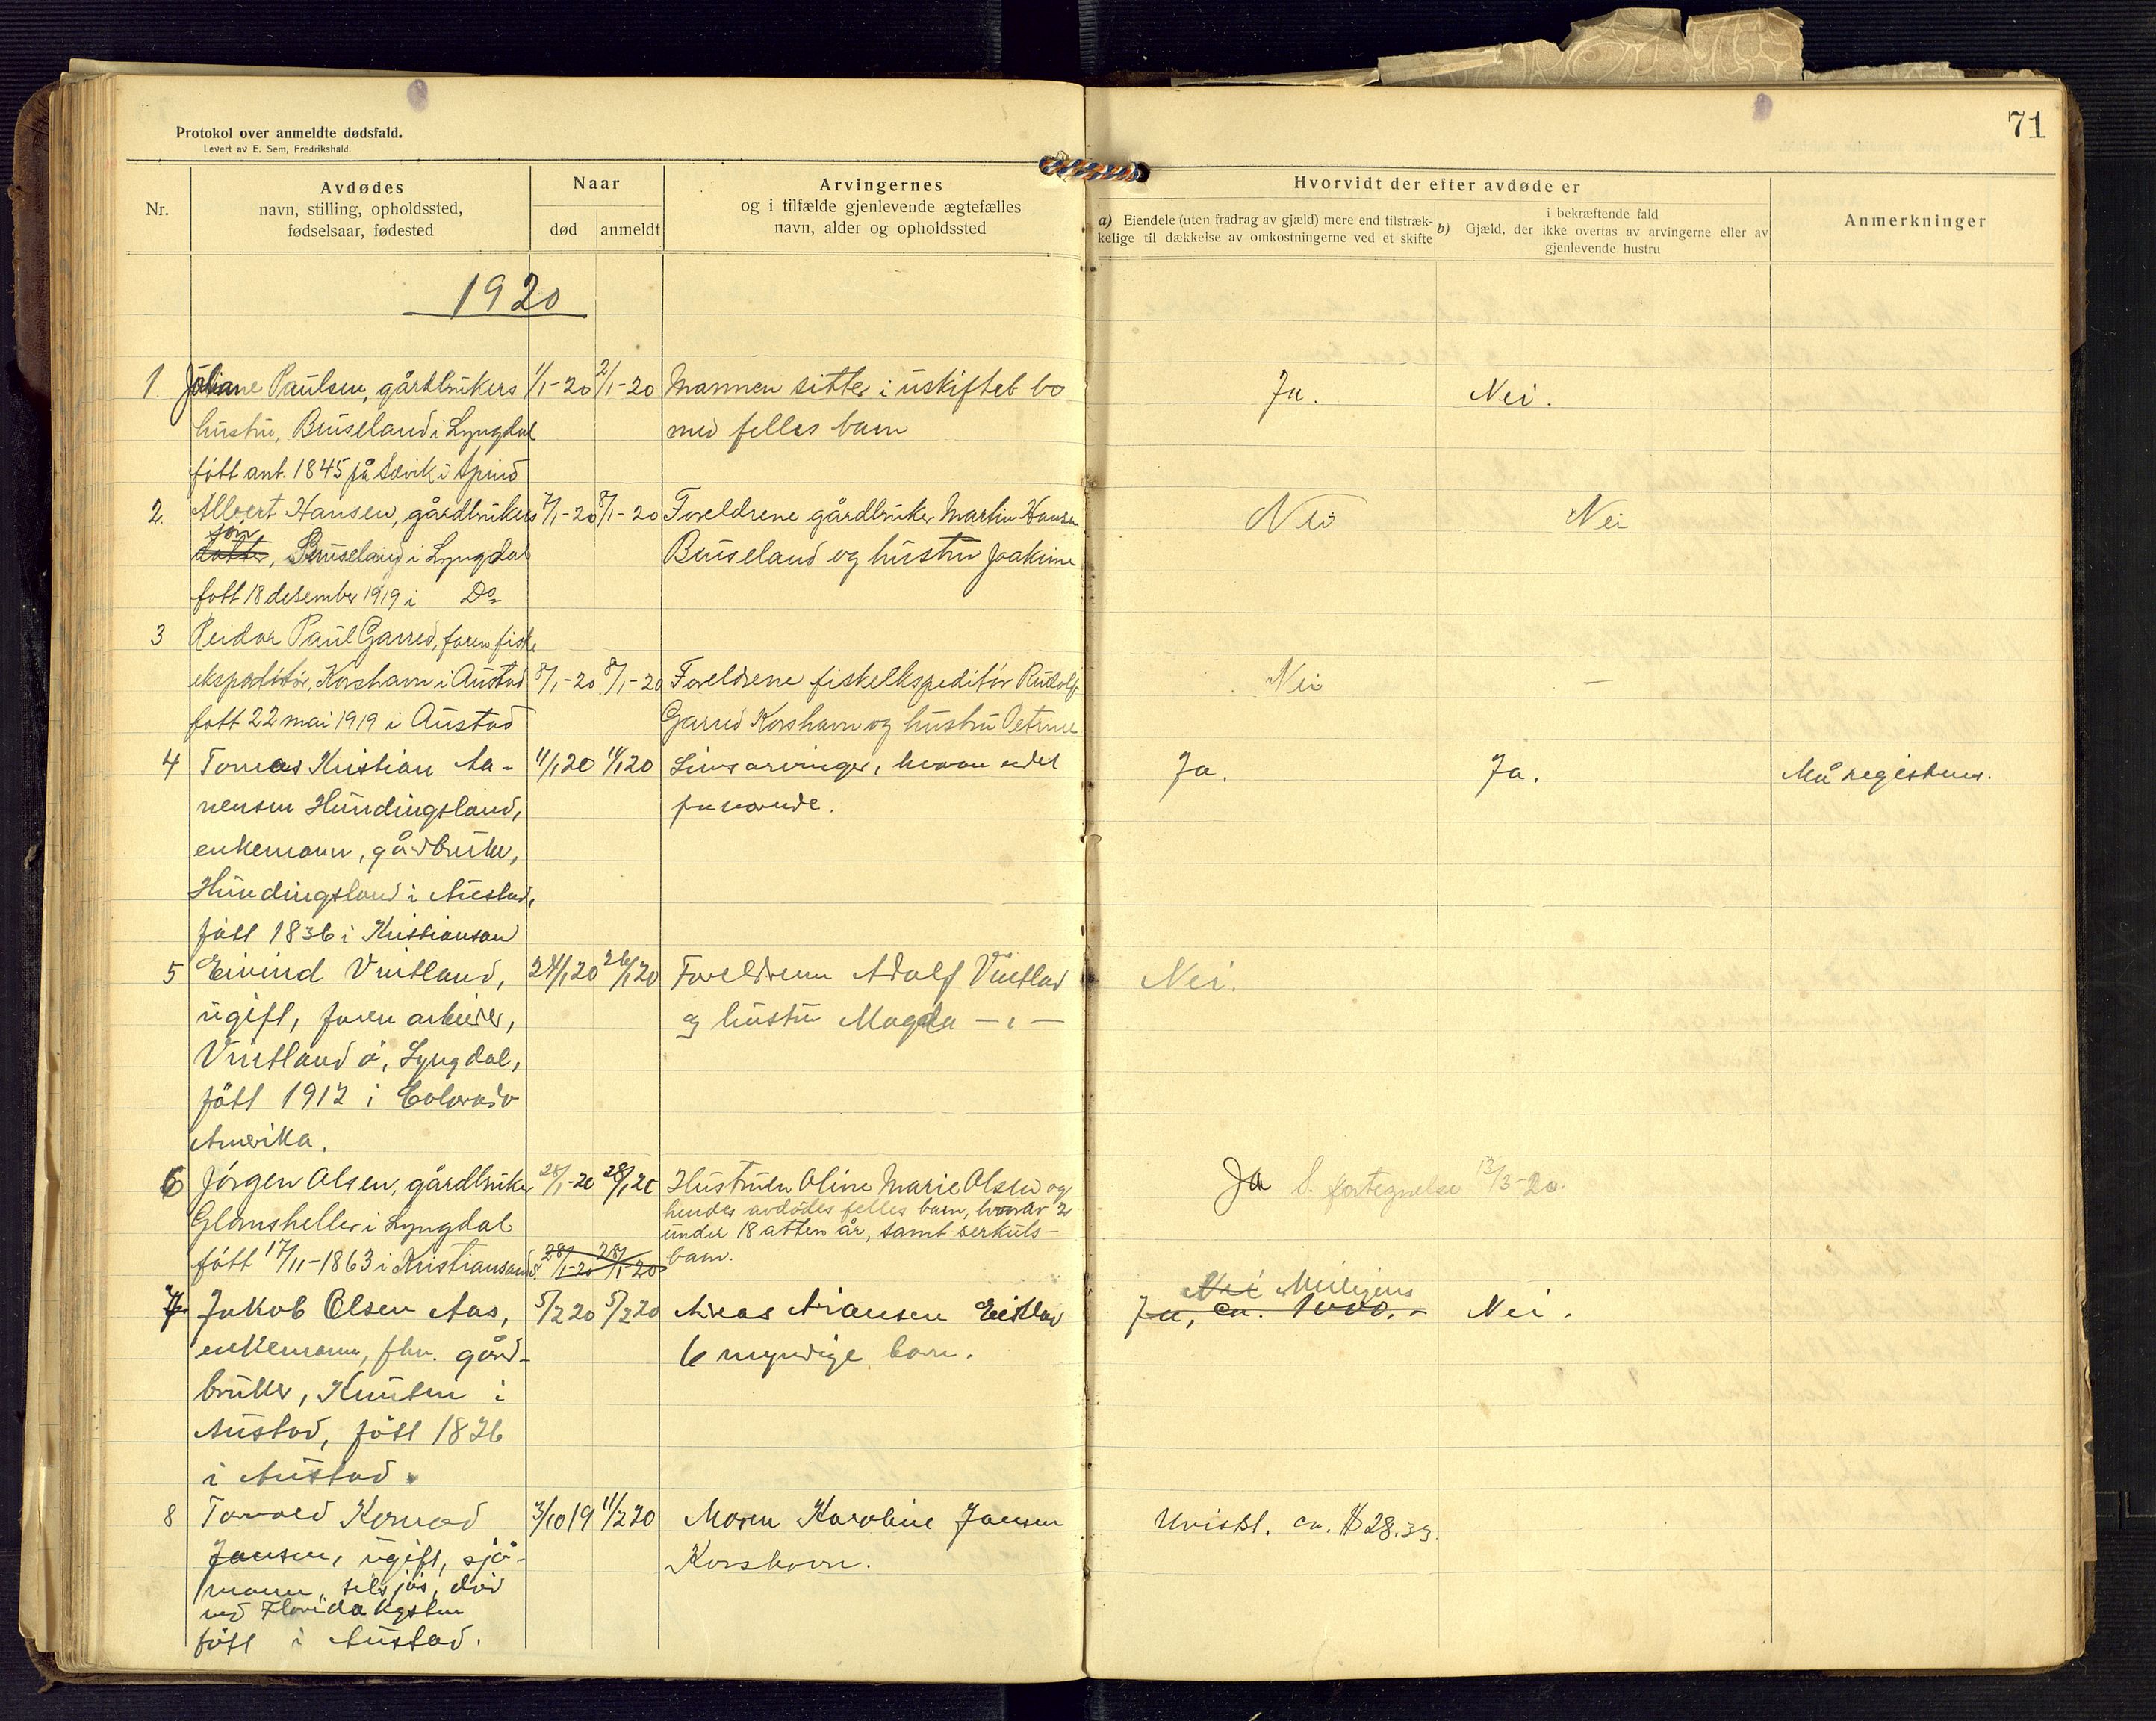 71
Protokol over anmeldte dødsfald.
Levert av E. Sem, Fredrikshald.
Nr.
Avdødes
navn, stilling, opholdssted,
fødselsaar, fødested
Naar
død
anmeldt
Arvingernes
og i tilfælde gjenlevende ægtefælles
navn, alder og opholdssted
Hvorvidt der efter avdøde er
a) Eiendele (uten fradrag av gjæld) mere end tilstræk-
kelige til dækkelse av omkostningerne ved et skifte
b) Gjæld, der i bekræftende fald
ikke overtas av arvingerne eller av
gjenlevende hustru
Anmerkninger
1920
1. Juliane Paulsen, gårdbrukers 1/1-20 2/1-20 Mannen sitter i uskiftet bo Ja. Nei.
hustru, Buseland i Lyngdal med felles barn
født ant. 1845 på Sævik i Spind
2. Albert Hansen, gårdbrukers 7/1-20 8/1-20 Foreldrene gårdbruker Martin Hansen Nei Nei
søn
datter, Buseland i Lyngdal Buseland og hustru Joakime
født 18 desember 1919 i Do
3 Reidar Paul Garred, faren fiske
ekspeditør, Korshavn i Austad 8/1-20 8/1-20 Foreldrene fiskeekspeditør Rudolf Nei —
født 22 mai 1919 i Austad Garred Korshavn og hustru Petrine
4 Tomas Kristian Aa- 11/1 20 14/1 20 Livsarvinger, hvorav endel Ja. Ja. Må registeres.
nensen Hundingsland, fraværende.
enkemann, gårdbruker,
Hundingsland i Austad,
født 1836 i Kristiansand
5 Eivind Vintland, 24/1 20 26/1 20 Foreldrene Adolf Vintland Nei.
ugift, faren arbeider, og hustru Magda — " —
Vintland ø, Lyngdal,
født 1912 i Colorado
Amerika.
6 Jørgen Olsen, gårdbruker 28/1-20 28/1 20 Hustruen Oline Marie Olsen og Ja S. fortegnelse 13/3-20.
Glamsheller i Lyngdal hendes avdødes felles barn, hvorav 2
født 17/11-1863 i Kristiansand S. 28/1-20 28/1-20 under 18 atten år, samt serkuls-
barn.
7 Jakob Olsen Aas, 5/2 20 5/2 20 Aneas Ariansen Eikland Ja, ca. 1000.- Nei Muligens Nei.
enkemann, fhv. gård- 6 myndige barn.
bruker, Knuten i
Austad, født 1826
i Austad.
8 Torvald Konrad 3/10 19 11/2 20 Moren Karoline Jansen Uvisst. ca. $28.33.
Jansen, ugift, sjø- Korshavn.
mann, tilsjøs, død
ved Florida kysten
født i Austad.